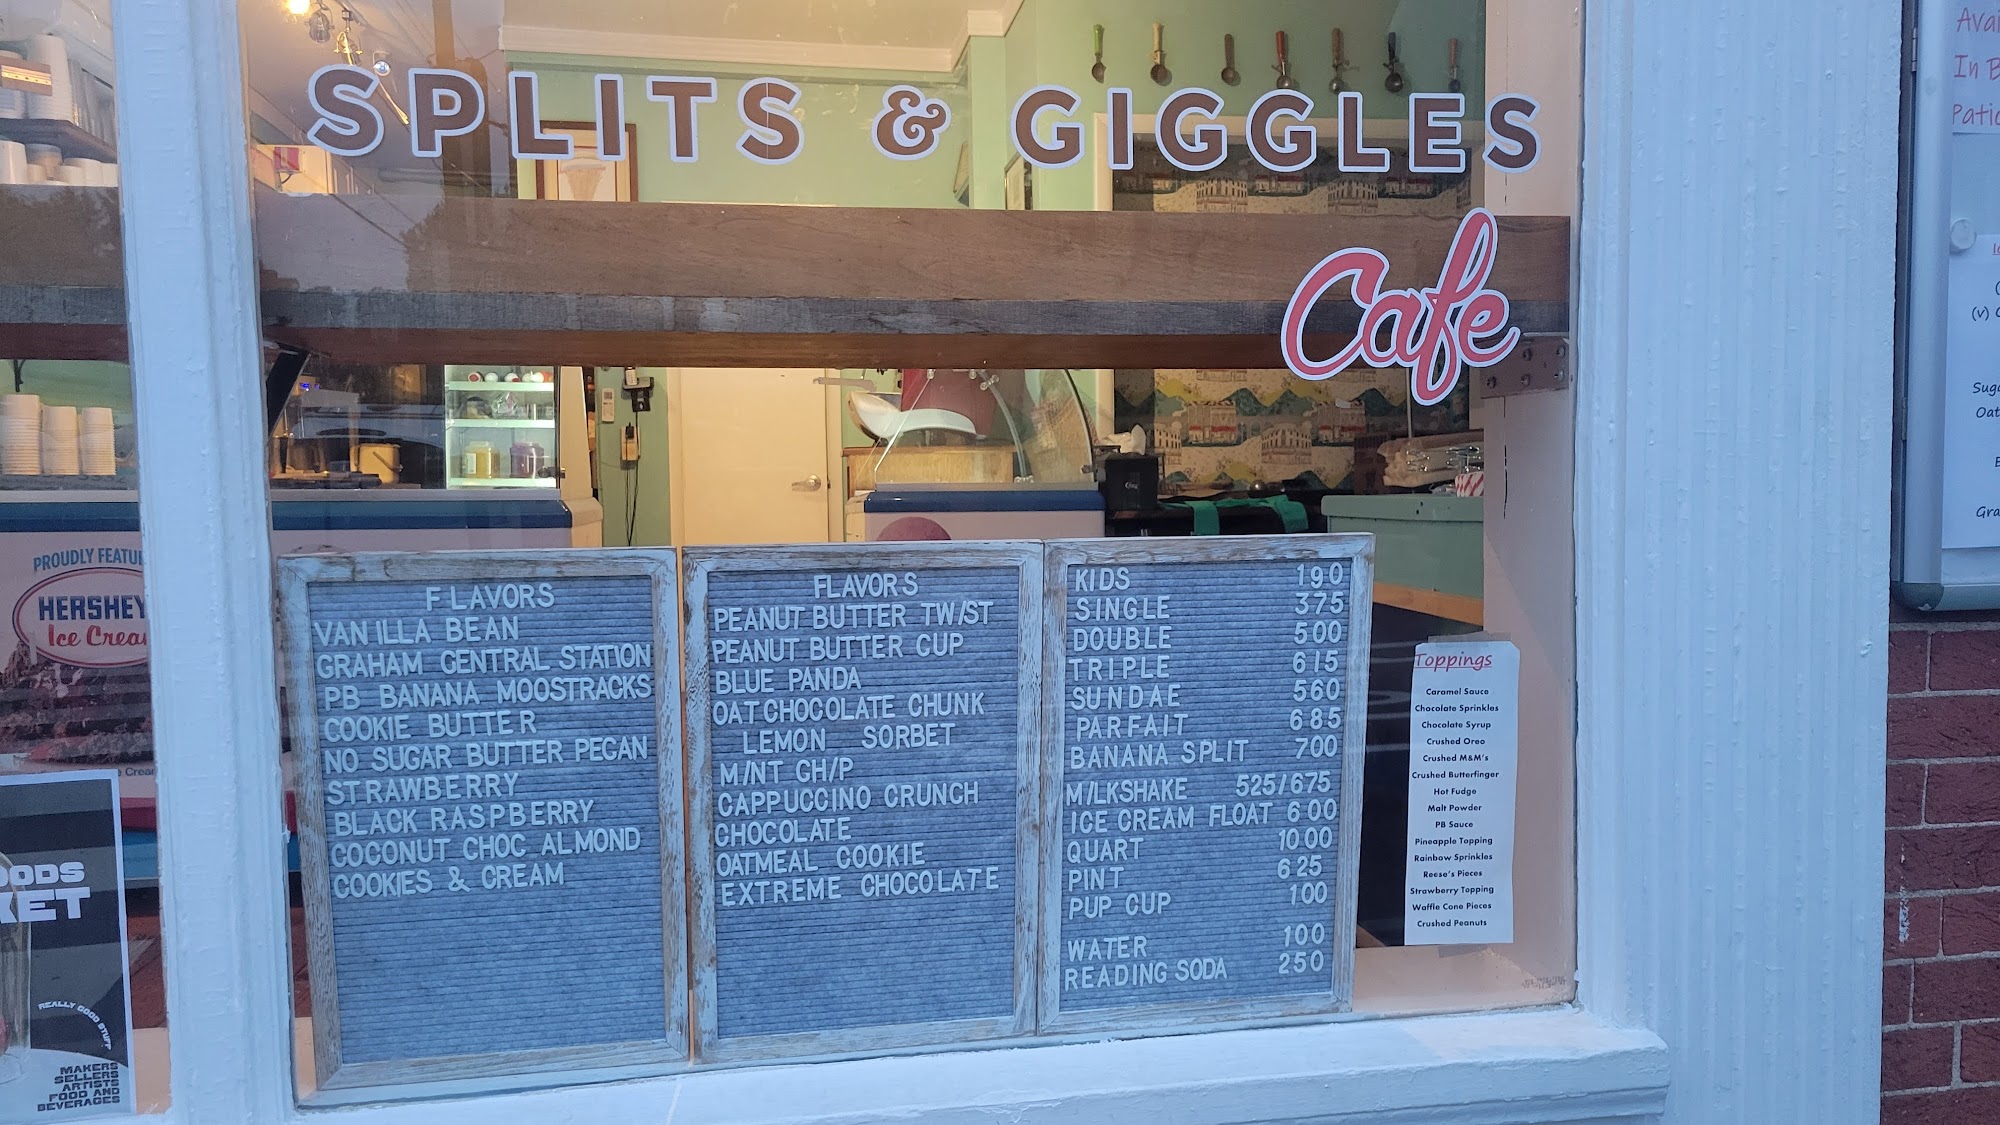 SPLITS & GIGGLES
Cafe
FLAVORS
VANILLA BEAN
GRAHAM CENTRAL STATION
PB BANANA MOOSTRACKS
COOKIE BUTTER
NO SUGAR BUTTER PECAN
STRAWBERRY
BLACK RASPBERRY
COCONUT CHOC ALMOND
COOKIES & CREAM
FLAVORS
PEANUT BUTTER TW/ST
PEANUT BUTTER CUP
BLUE PANDA
OAT CHOCOLATE CHUNK
LEMON SORBET
M/NT CH/P
CAPPUCCINO CRUNCH
CHOCOLATE
OATMEAL COOKIE
EXTREME CHOCOLATE
KIDS 190
SINGLE 375
DOUBLE 500
TRIPLE 615
SUNDAE 560
PARFAIT 685
BANANA SPLIT 700
M/LKSHAKE 525/675
ICE CREAM FLOAT 600
QUART 1000
PINT 625
PUP CUP 100
WATER 100
READING SODA 250
Toppings
Caramel Sauce
Chocolate Sprinkles
Chocolate Syrup
Crushed Oreo
Crushed M&M's
Crushed Butterfinger
Hot Fudge
Malt Powder
PB Sauce
Pineapple Topping
Rainbow Sprinkles
Reese's Pieces
Strawberry Topping
Waffle Cone Pieces
Crushed Peanuts
PROUDLY FEATU
HERSHEY
Ice Crea
OODS
KET
REALLY GOOD STUFF
MAKERS
SELLERS
ARTISTS
FOOD AND
BEVERAGES
Avai
In B
Patio
(v)
Suga
Oat
Gra